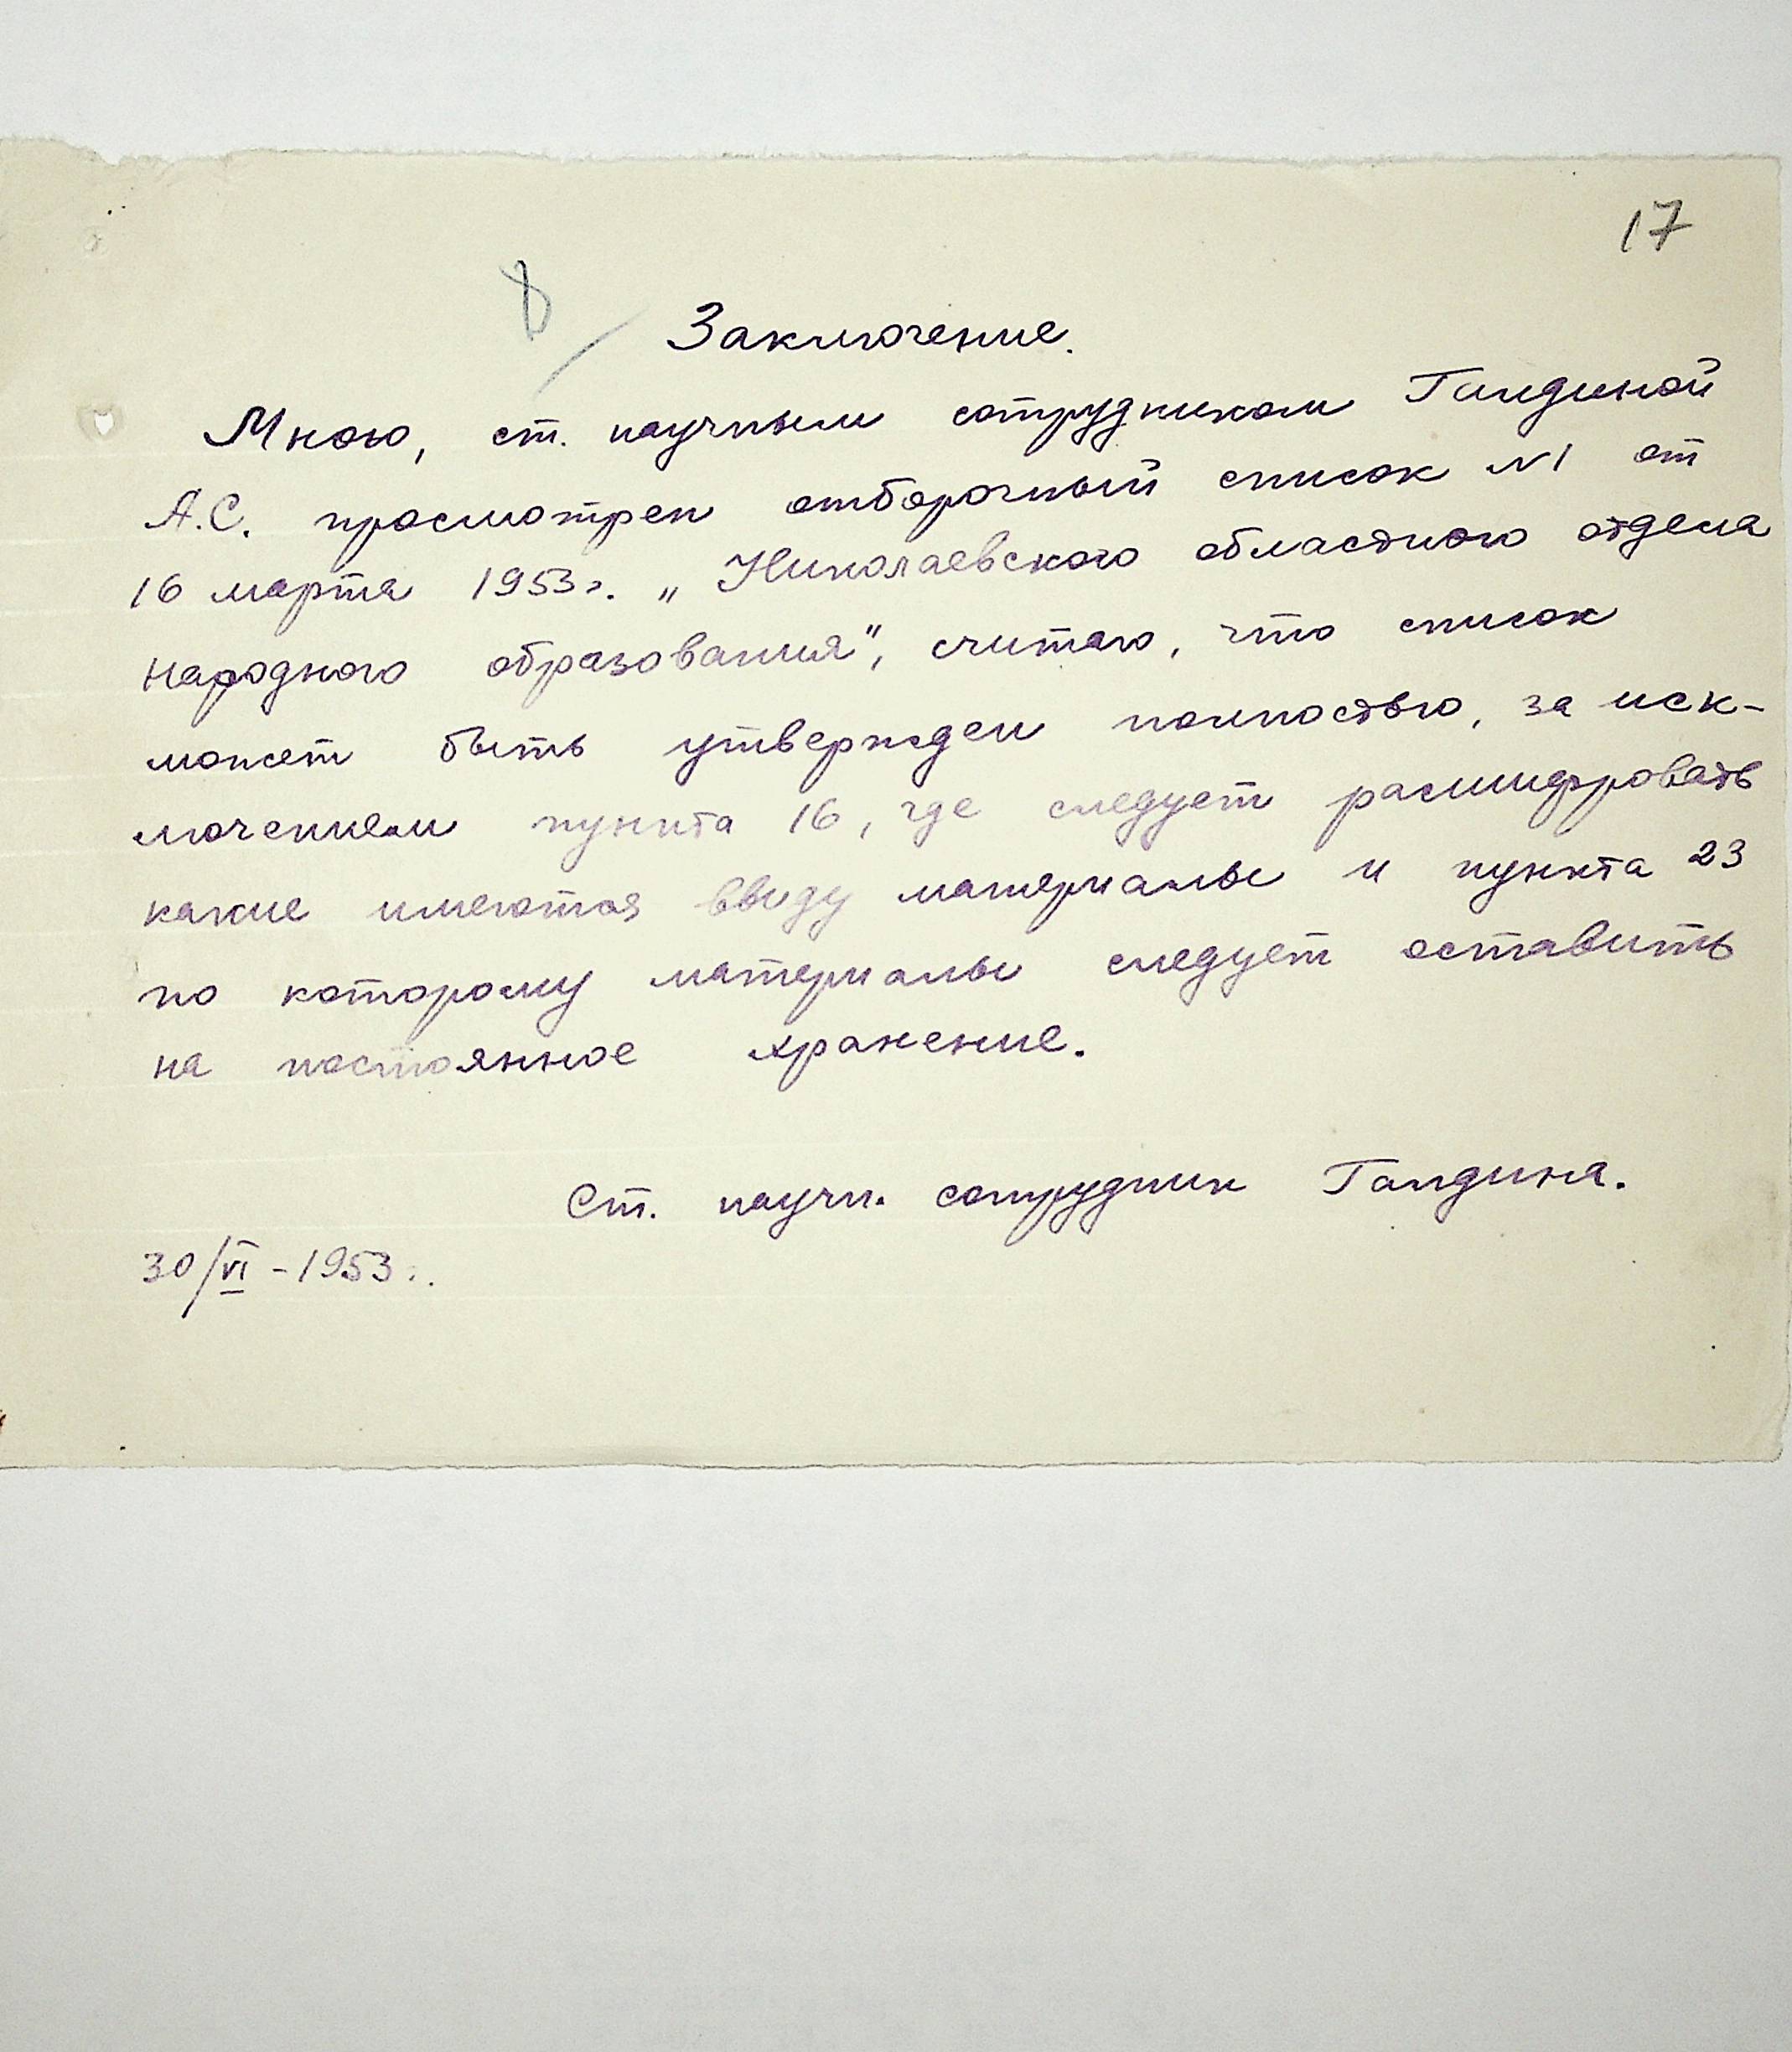 17
Заключение.
Мною, ст. научным сотрудником Гандиной
А.С. просмотрен отборочный список N1 от
16 марта 1953г. „Николаевского областного отдела
народного образования", считаю, что список
может быть утвержден полностью, за иск-
лючением пункта 16, где следует расшифровать
какие имеются ввиду материалы и пункта 23
по которому материалы следует оставить
на постоянное хранение.
Ст. научн. сотрудник Гандина.
30/VI - 1953г.